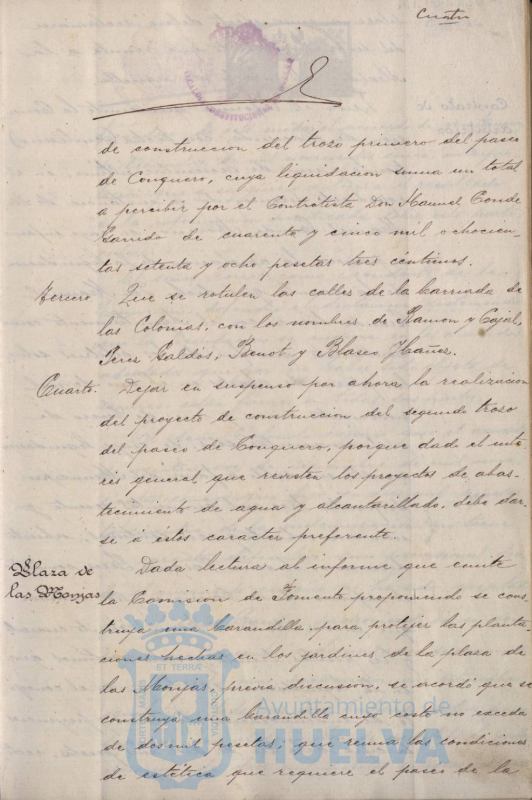 Cuatro
de construccion del trozo primero del paseo
de Conquero, cuya liquidacion suma un total
a percibir por el Contratista Don Manuel Conde
Garrido de cuarenta y cinco mil ochocien-
tas setenta y ocho pesetas tres centimos.
Tercero Que se rotulen las calles de la barriada de
las Colonias, con los nombres de Ramon y Cajal,
Perez Galdós, Benot y Blasco Ybañez.
Cuarto. Dejar en suspenso por ahora la realizacion
del proyecto de construccion del segundo trozo
del paseo de Conquero, porque dado el inte-
rés general que revisten los proyectos de abas-
tecimiento de agua y alcantarillado, debe dar-
se á estos caracter preferente.
Plaza de
las Monjas
Dada lectura al informe que emite
la Comision de Fomento proponiendo se cons-
truya una barandilla para protejer las planta-
ciones hechas en los jardines de la plaza de
las Monjas, previa discusion, se acordó que se
construya una barandilla cuyo costo no exceda
de dos mil pesetas, que reuna las condiciones
de estética que requiere el paseo de la
Ayuntamiento de
HUELVA